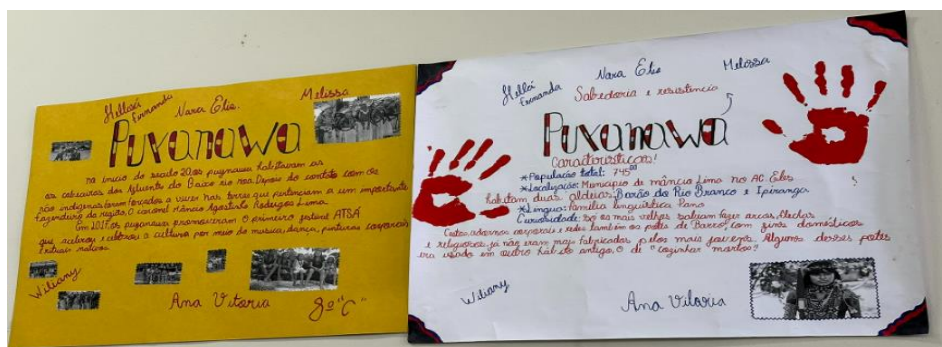 Helloá
Fernanda
Nara Elis.
Melissa
Puxanawa
na início do século 20, os puyanawa habitavam as
as cabeceiras dos afluentes do Baixo rio moa. Depois do contato com os
não indígenas foram forçados a viver nas terras que pertenciam a um importante
fazendeiro da região. O coronel Mâncio Agostinho Rodrigues Lima.
Em 2017, os puyanawa promoveram o primeiro festival ATSÁ
que acelerou e celebrou a cultura por meio da musica, dança, pinturas corporais
rituais nativos.
Wiliany
Ana Vitoria
8º "C"
Helloá
Fernanda
Nara Elis
Melissa
Sabedoria e resistência
Puxanawa
Características!
*População total: 745
*Localização: Municipio de mâncio Lima no AC. Eles
habitam duas aldeias: Barão do Rio Branco e Ipiranga.
*Língua: Família linguística Pano
Curiosidade: Só os mais velhos sabiam fazer arcos, flechas
Certos adornos corporais e redes também os potes de Barro, com fins domésticos
e religiosos, já não eram mais fabricados pelos mais jovens. Alguns desses potes
era usado em outro ritual antigo, O de "cozinhar mortos"!
Wiliany
Ana Vitoria